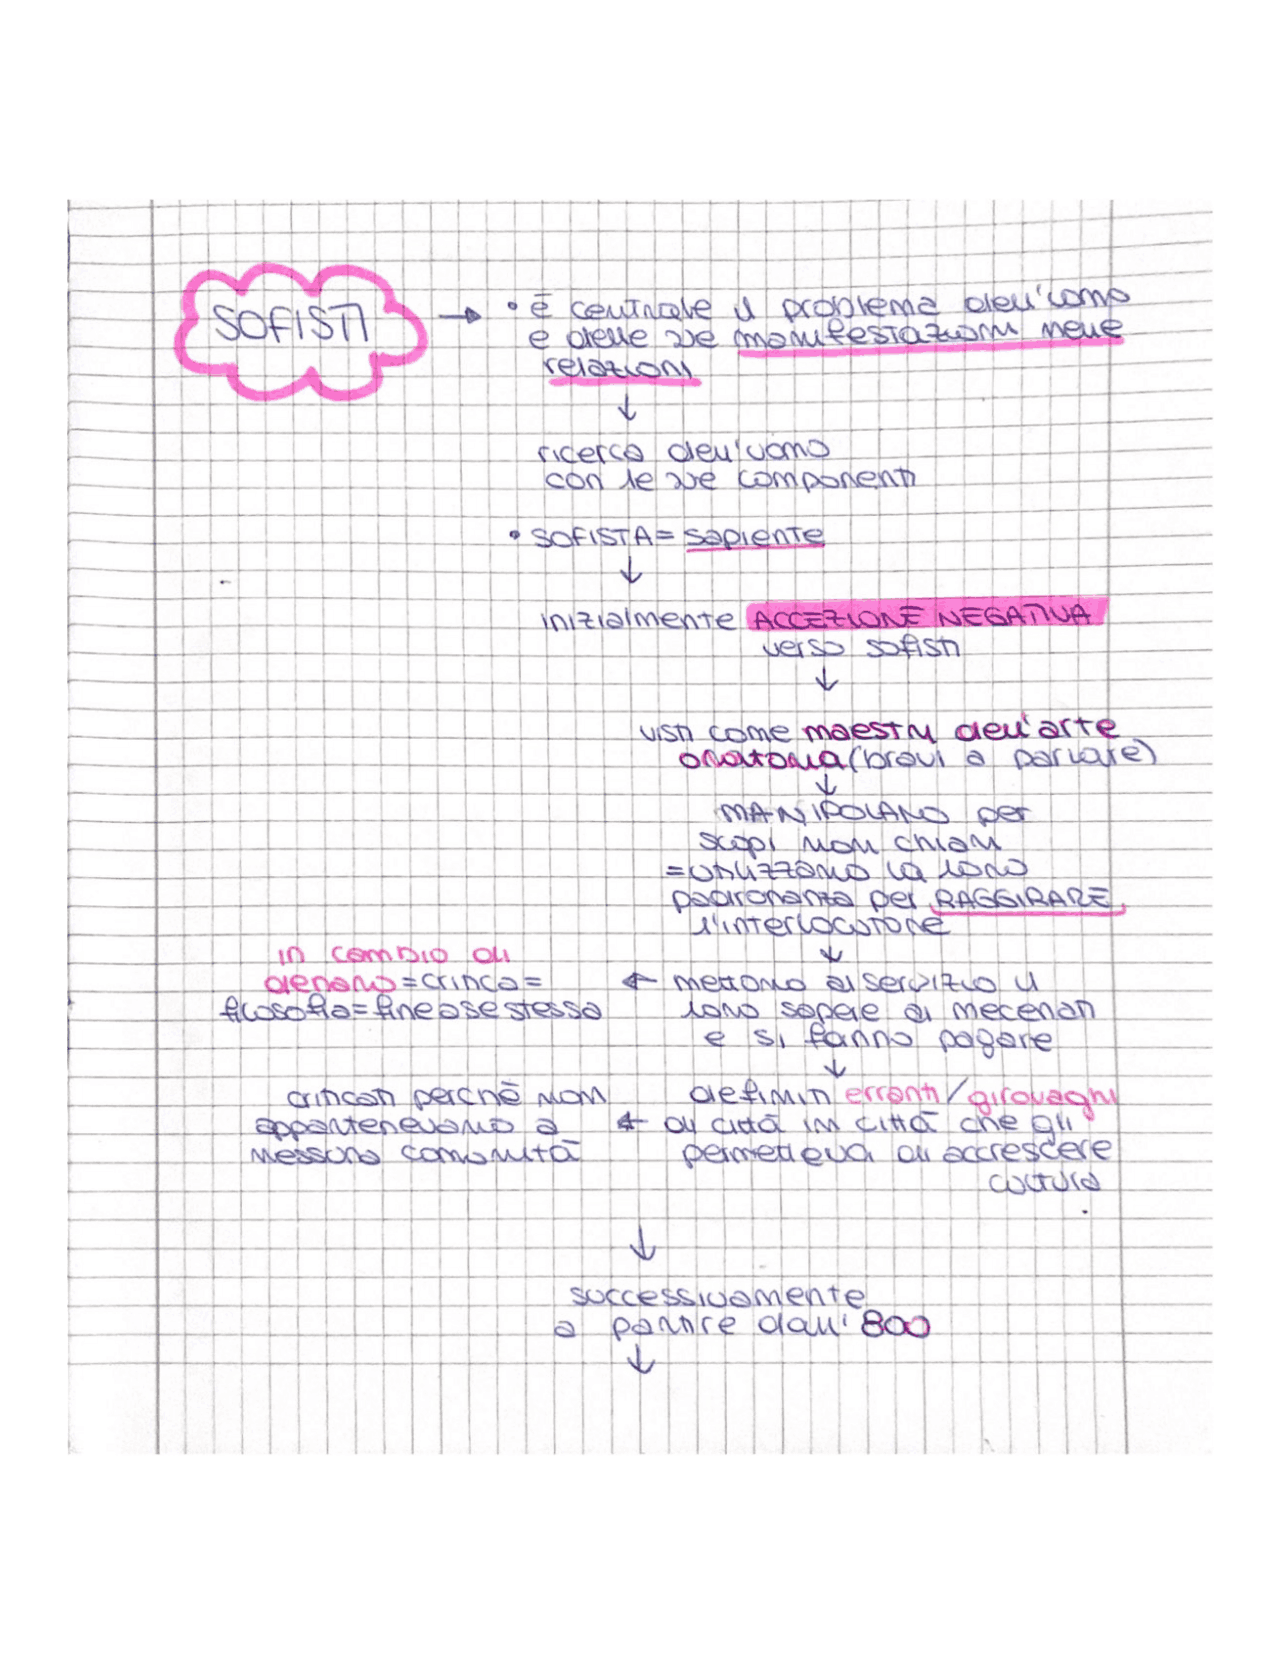 SOFISTI
→ • è centrale il problema dell'uomo
e delle sue manifestazioni nelle
relazioni
↓
ricerca dell'uomo
con le sue componenti
• SOFISTA = sapiente
↓
inizialmente ACCEZIONE NEGATIVA
verso sofisti
↓
visti come maestri dell'arte
oratoria (bravi a parlare)
↓
MANIPOLANO per
scopi non chiari
= utilizzano la loro
padronanza per RAGGIRARE
l'interlocutore
↓
← mettono al servizio il
loro sapere ai mecenati
e si fanno pagare
in cambio di
denaro = critica =
filosofia = fine a se stessa
↓
definiti erranti / girovaghi
← di città in città che gli
permetteva di accrescere
cultura
criticati perchè non
appartenevano a
nessuna comunità
↓
successivamente
a partire dall' 800
↓